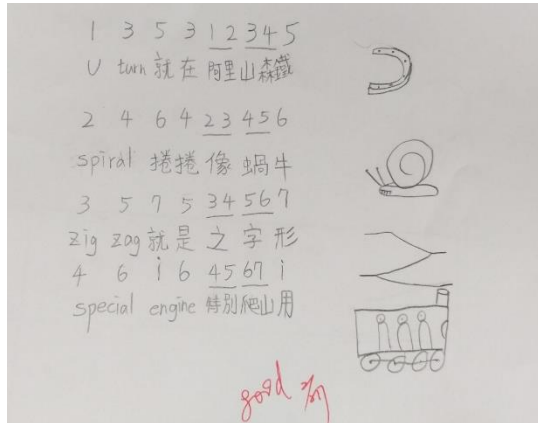 1 3 5 3 1 2 3 4 5
U turn 就在阿里山森鐵
2 4 6 4 2 3 4 5 6
spiral 捲捲像蝸牛
3 5 7 5 3 4 5 6 7
zig zag 就是之字形
4 6 i 6 4 5 6 7 i
special engine 特別爬山用
good